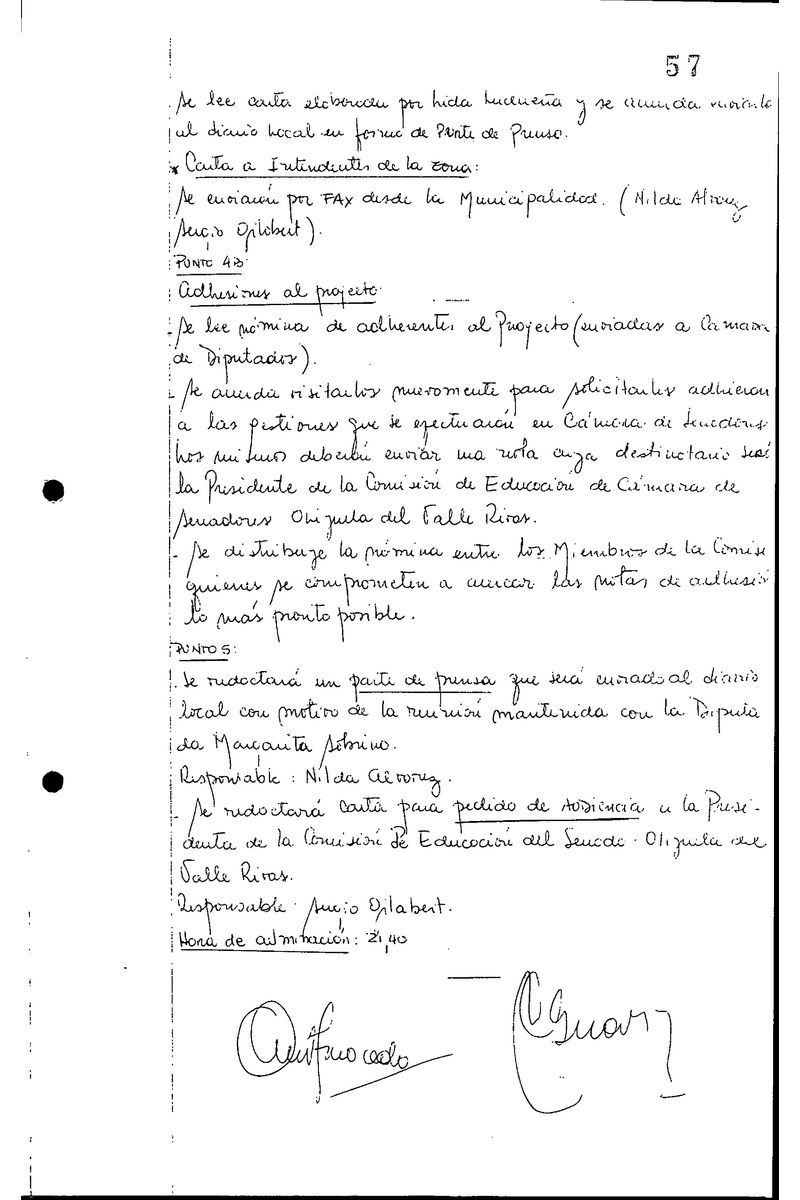 57
. Se lee carta elaborada por Lida Lucueña y se acuerda enviarla
al diario local en forma de Parte de Prensa.
* Carta a Intendentes de la zona:
Se enviarán por FAX desde la Municipalidad. (Nilda Alvarez
Sergio Gilabert).
PUNTO 4B:
Adhesiones al proyecto
- Se lee nómina de adherentes al Proyecto (enviadas a Cámara
de Diputados).
- Se acuerda visitarlos nuevamente para solicitarles adhieran
a las gestiones que se efectuarán en Cámara de Senadores
Los mismos deberán enviar una nota cuya destinataria será
la Presidente de la Comisión de Educación de Cámara de
Senadores Olijuela del Valle Rivas.
- Se distribuye la nómina entre los Miembros de la Comisi
quienes se comprometen a acercar las notas de adhesión
lo más pronto posible.
PUNTO 5:
. Se redactará un parte de prensa que será enviado al diario
local con motivo de la reunión mantenida con la Diputa
da Margarita Sobrino.
Responsable: Nilda Alvarez.
- Se redactará carta para pedido de AUDIENCIA a la Presi-
denta de la Comisión de Educación del Senado. Olijuela del
Valle Rivas.
Responsable: Sergio Gilabert.
Hora de culminación: 21,40